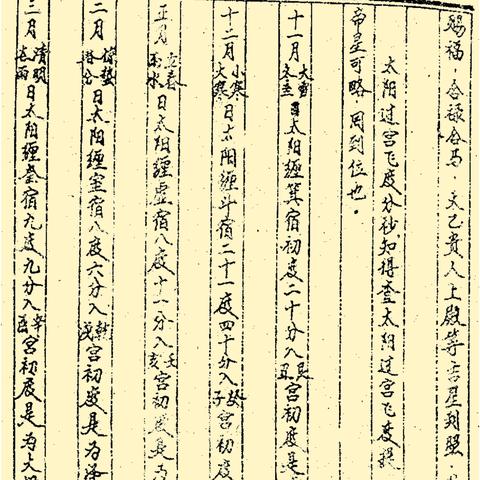 赐福，合禄合马，太乙贵人上殿等吉星到照，
太阳过宫飞度分秒，知得查太阳过宫飞度
帝星可略，周到位也。
十一月大雪冬至日太阳缠箕宿初度二十分入艮丑宫初度是
十二月小寒大寒日太阳缠斗宿二十一度四十分入癸子宫初度
正月立春雨水日太阳缠虚宿八度十一分入壬亥宫初度是为
二月惊蛰春分日太阳缠室宿八度六分入乾戌宫初度是为
三月清明谷雨日太阳缠奎宿九度九分入辛酉宫初度是为大